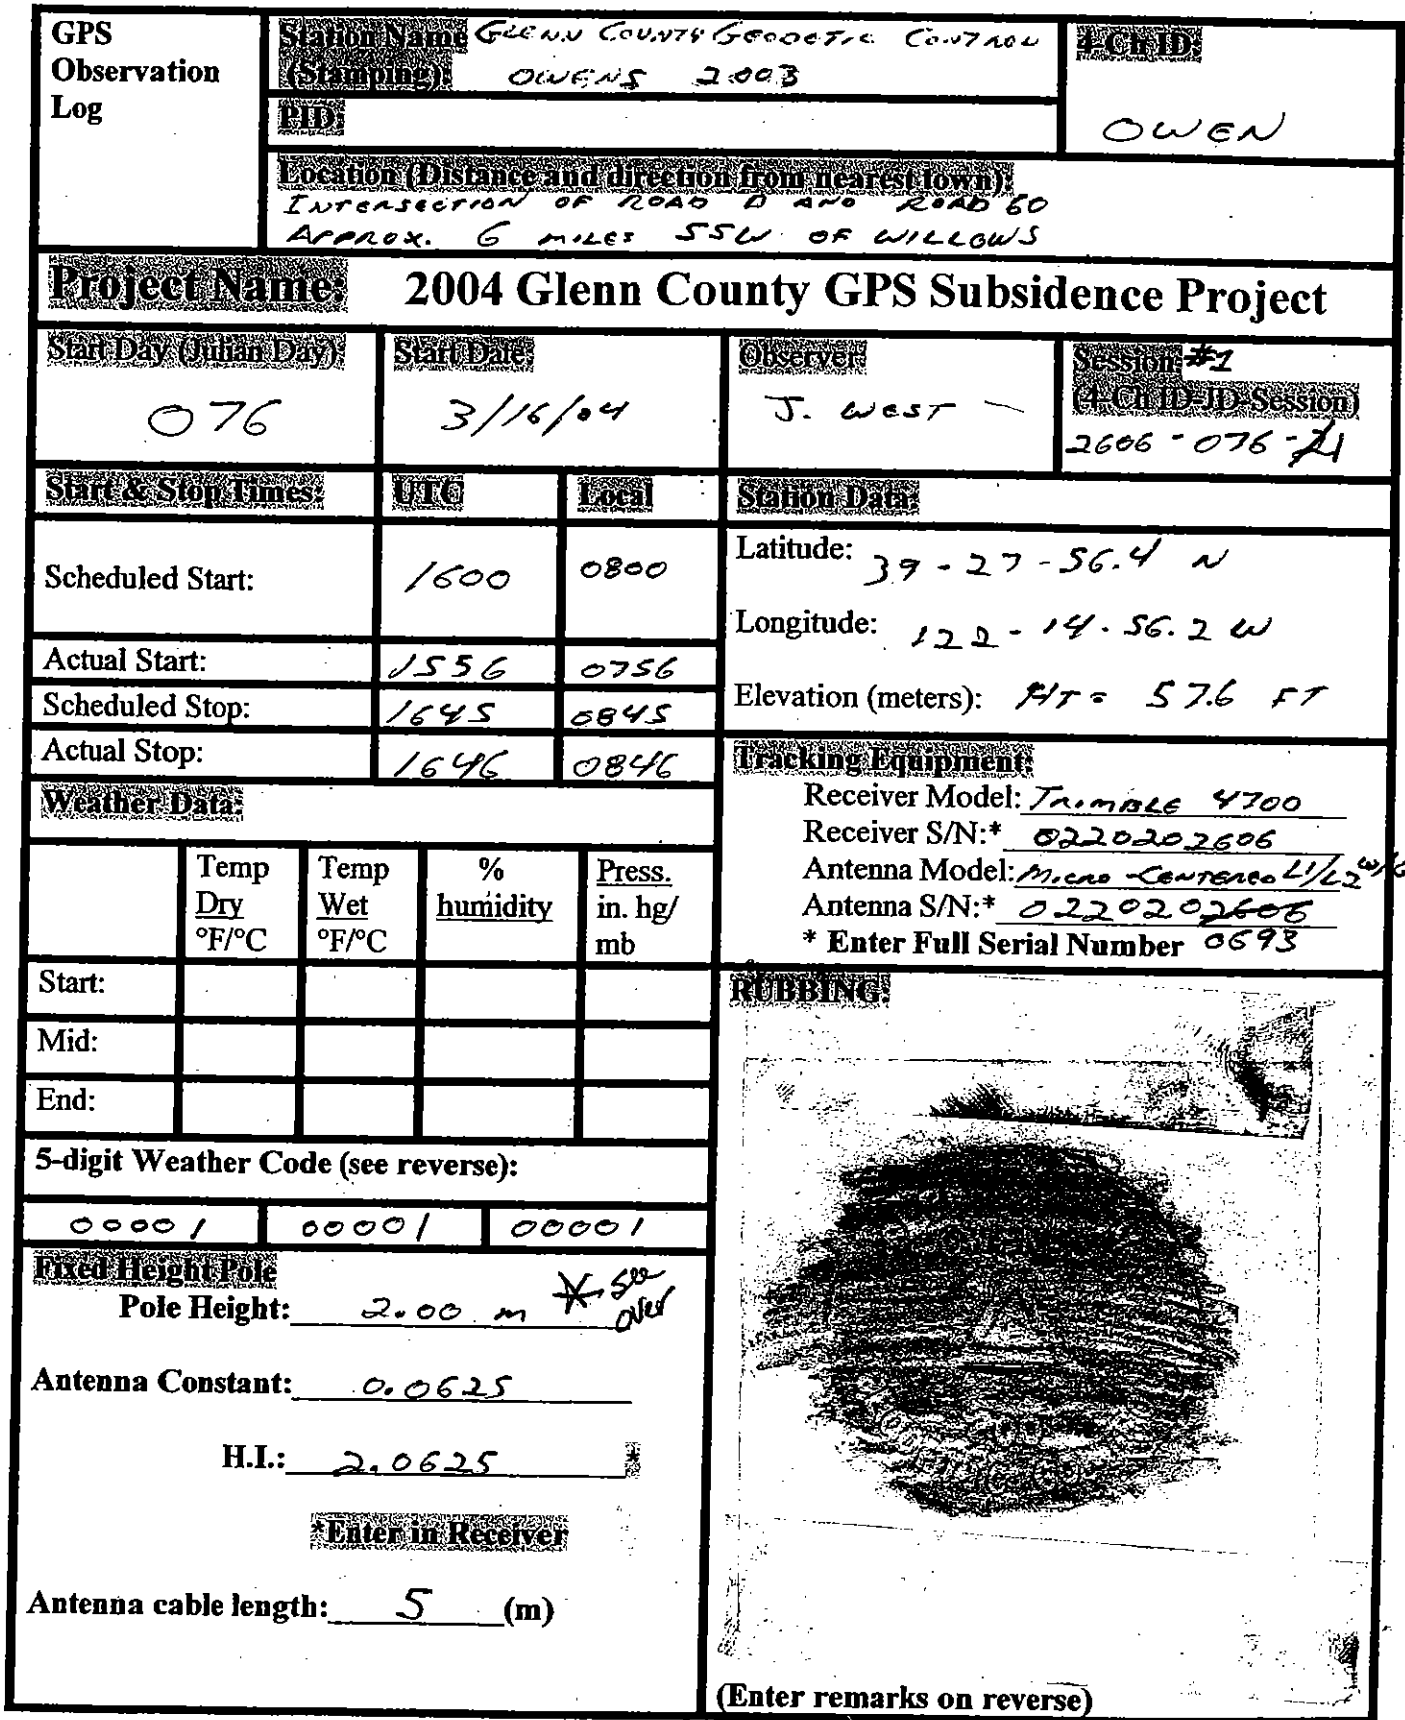 GPS
Observation
Log
Station Name GLENN COUNTY GEODETIC CONTROL
(Stamping): OWENS 2003
4-Ch ID:
OWEN
PID:
Location (Distance and direction from nearest town):
INTERSECTION OF ROAD D AND ROAD 60
APPROX. 6 MILES SSW OF WILLOWS
Project Name: 2004 Glenn County GPS Subsidence Project
Start Day (Julian Day):
076
Start Date:
3/16/04
Observer:
J. WEST
Session: #1
(4-Ch ID-JD-Session)
2606-076-1
Start & Stop Times: UTC Local
Scheduled Start: 1600 0800
Actual Start: 1556 0756
Scheduled Stop: 1645 0845
Actual Stop: 1646 0846
Station Data:
Latitude: 39-27-56.4 N
Longitude: 122-14-56.2 W
Elevation (meters): HT = 57.6 FT
Tracking Equipment:
Receiver Model: TRIMBLE 4700
Receiver S/N:* 0220202606
Antenna Model: MICRO-CENTERED L1/L2
Antenna S/N:* 0220202606
* Enter Full Serial Number 0693
Weather Data:
Temp Dry °F/°C
Temp Wet °F/°C
% humidity
Press. in. hg/ mb
Start:
Mid:
End:
5-digit Weather Code (see reverse):
00001 00001 00001
Fixed Height Pole
Pole Height: 2.00 m * see over
Antenna Constant: 0.0625
H.I.: 2.0625 *
*Enter in Receiver
Antenna cable length: 5 (m)
RUBBING:
(Enter remarks on reverse)